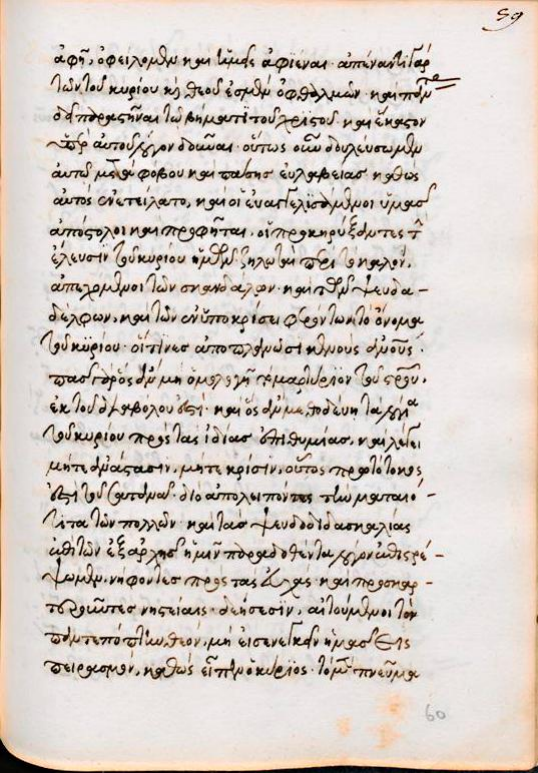 ἀφῇ, ὀφείλομεν καὶ ἡμεῖς ἀφιέναι· ἀπέναντι γὰρ
τῶν τοῦ κυρίου καὶ θεοῦ ἐσμὲν ὀφθαλμῶν· καὶ πάντας
δεῖ παραστῆναι τῷ βήματι τοῦ χριστοῦ· καὶ ἕκαστον
ὑπὲρ αὑτοῦ λόγον δοῦναι· οὕτως οὖν δουλεύσωμεν
αὐτῷ μετὰ φόβου καὶ πάσης εὐλαβείας καθὼς
αὐτὸς ἐνετείλατο, καὶ οἱ εὐαγγελισάμενοι ἡμᾶς
ἀπόστολοι καὶ προφῆται, οἱ προκηρύξαντες τὴν
ἔλευσιν τοῦ κυρίου ἡμῶν· ζηλωταὶ περὶ τὸ καλόν,
ἀπεχόμενοι τῶν σκανδάλων· καὶ τῶν ψευδα-
δέλφων, καὶ τῶν ἐν ὑποκρίσει φερόντων τὸ ὄνομα
τοῦ κυρίου· οἵτινες ἀποπλανῶσι κενοὺς ἀνθρώπους·
πᾶς γὰρ ὃς ἂν μὴ ὁμολογῇ τὸ μαρτύριον τοῦ σταυροῦ,
ἐκ τοῦ διαβόλου ἐστί· καὶ ὃς ἂν μεθοδεύῃ τὰ λόγια
τοῦ κυρίου πρὸς τὰς ἰδίας ἐπιθυμίας, καὶ λέγει
μήτε ἀνάστασιν, μήτε κρίσιν, οὗτος πρωτότοκος
ἐστι τοῦ σατανᾶ· διὸ ἀπολείποντες τὴν ματαιό-
τητα τῶν πολλῶν· καὶ τὰς ψευδοδιδασκαλίας
ἐπὶ τὸν ἐξ ἀρχῆς ἡμῖν παραδοθέντα λόγον ἐπιστρέ-
ψωμεν, νήφοντες πρὸς τὰς εὐχὰς· καὶ προσκαρ-
τεροῦντες νηστείαις· δεήσεσιν, αἰτούμενοι τὸν
παντεπόπτην θεόν, μὴ εἰσενεγκεῖν ἡμᾶς εἰς
πειρασμόν, καθὼς εἶπεν ὁ κύριος· τὸ μὲν πνεῦμα
60